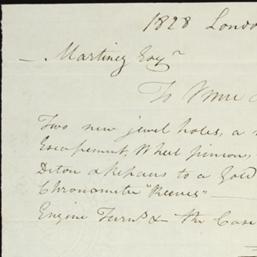 1828 Londo
Martinez Esqr
To
Two new jewel holes, a
Escapement, Wheel pinions,
Diton & Repairs to a Gold
Chronometer "Reeves"
Engine Turnd & the Case